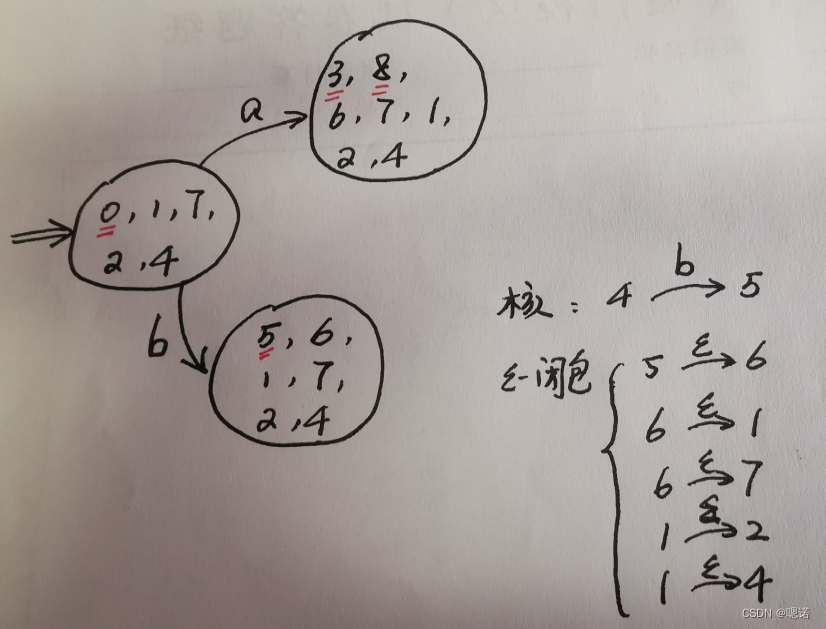 a
3, 8,
6, 7, 1,
2, 4
0, 1, 7,
2, 4
b
5, 6,
1, 7,
2, 4
核: 4 b 5
ε-闭包
5 ε 6
6 ε 1
6 ε 7
1 ε 2
1 ε 4
CSDN @嗯诺